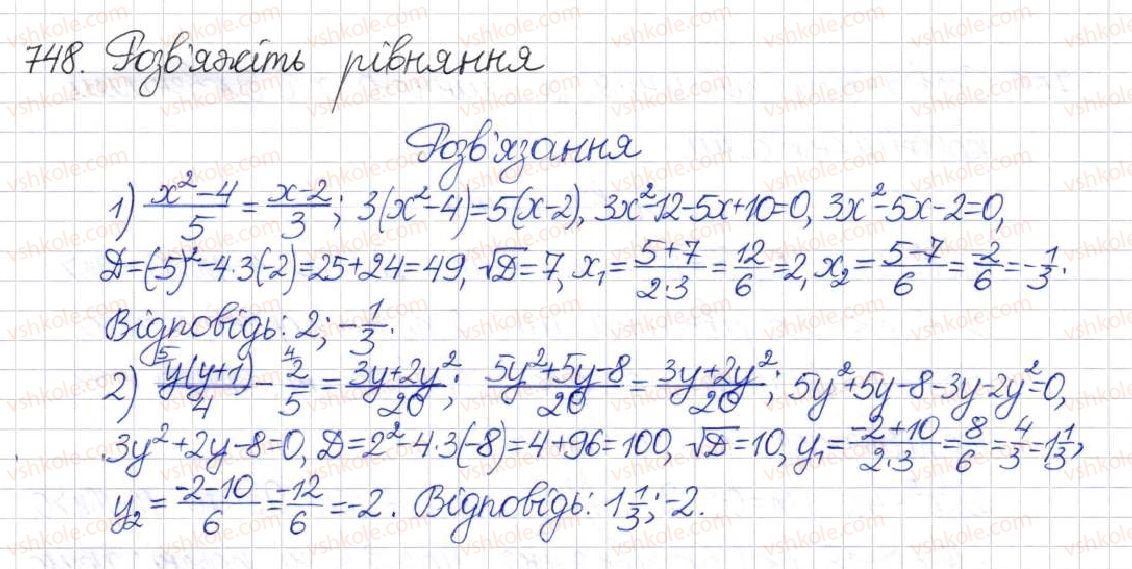 748. Розв'яжіть рівняння
Розв'язання
1) (x²-4)/5 = (x-2)/3; 3(x²-4)=5(x-2), 3x²-12-5x+10=0, 3x²-5x-2=0,
D=(-5)²-4·3(-2)=25+24=49, √D=7, x₁=(5+7)/(2·3)=12/6=2, x₂=(5-7)/6=-2/6=-1/3.
Відповідь: 2; -1/3.
2) ⁵y(y+1)/4 - ⁴2/5 = (3y+2y²)/20; (5y²+5y-8)/20 = (3y+2y²)/20; 5y²+5y-8-3y-2y²=0,
3y²+2y-8=0, D=2²-4·3(-8)=4+96=100, √D=10, y₁=(-2+10)/(2·3)=8/6=4/3=1 1/3,
y₂=(-2-10)/6=-12/6=-2. Відповідь: 1 1/3; -2.